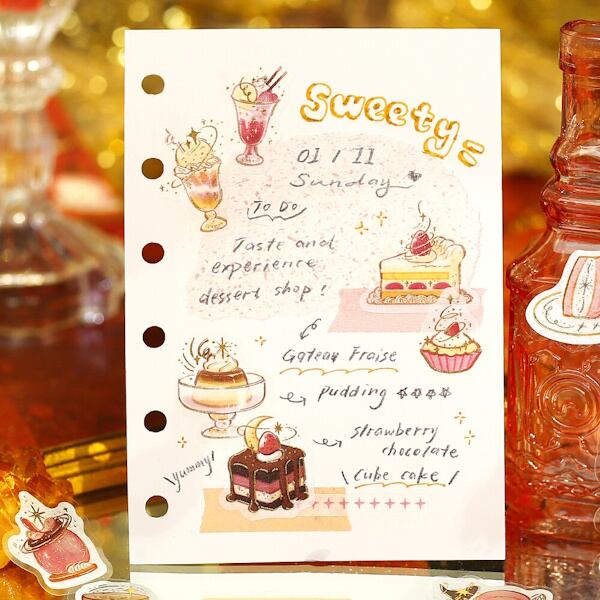 Sweety
01 / 11
Sunday
To Do
Taste and
experience
dessert shop!
Gateau Fraise
Pudding
Strawberry
chocolate
Cube cake
yummy!